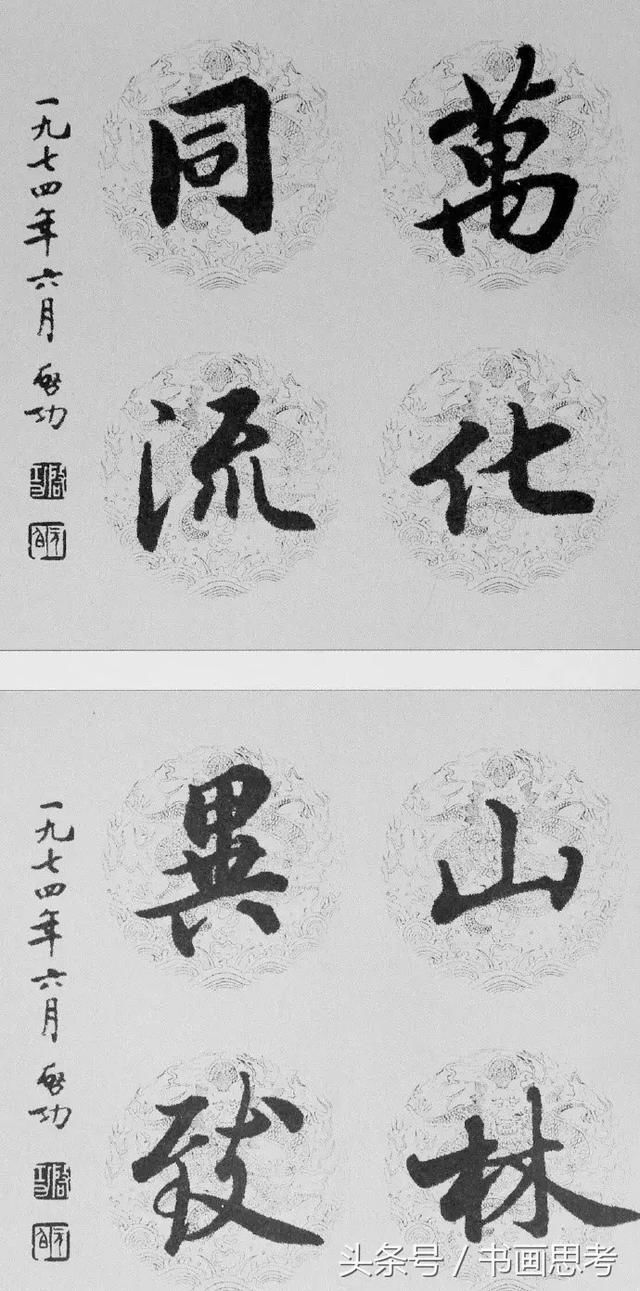 萬化
同流
一九七四年六月 啟功
山林
異致
一九七四年六月 啟功
头条号 / 书画思考